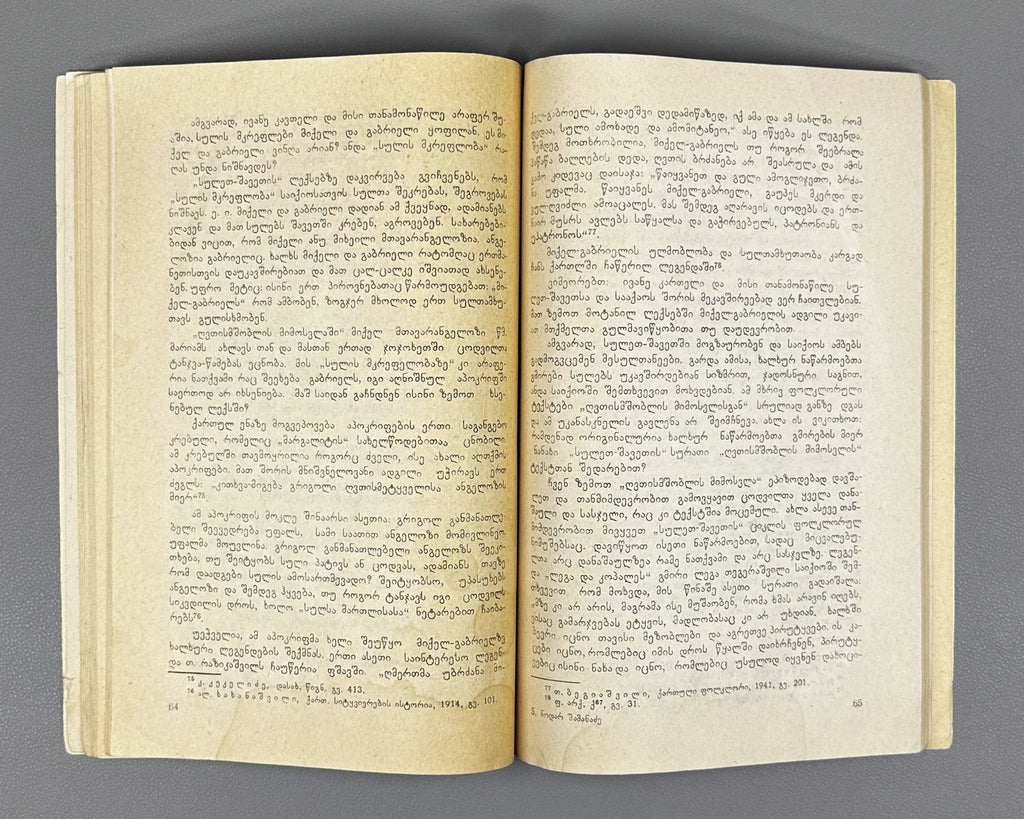 ამგვარად, ივანე კავთელი და მისი თანამონაწილე არაფერ შუ-
აშია, სულის მკრეფლები მიქელი და გაბრიელი ყოფილან. ეს მი-
ქელ და გაბრიელი ვინღა არიან? ანდა „სულის მკრეფლობა“ რა-
ღას უნდა ნიშნავდეს?
„სულეთ-შავეთის“ ლექსებზე დაკვირვება გვიჩვენებს, რომ
„სულის მკრეფლობა“ საიქიოსათვის სულთა შეკრებას, შეგროვებას
ნიშნავს. ე. ი. მიქელი და გაბრიელი დადიან ამ ქვეყნად, ადამიანებს
კლავენ და მათ სულებს შავეთში კრებენ, აგროვებენ. სახარებები-
ბიდან ვიცით, რომ მიქელი ანუ მიხეილი მთავარანგელოზია. ანგე-
ლოზია გაბრიელიც. ხალხს მიქელი და გაბრიელი რატომღაც ერთმა-
ნეთისთვის დაუკავშირებიათ და მათ ცალ-ცალკე იშვიათად ახსენე-
ბენ. უფრო მეტიც: ისინი ერთ პიროვნებათაც წარმოუდგებათ: „მი-
ქელ-გაბრიელს“ რომ ამბობენ, ზოგჯერ მხოლოდ ერთ სულთამხუ-
თავს გულისხმობენ.
„ღვთისმშობლის მიმოსვლაში“ მიქელ მთავარანგელოზი წმ.
მარიამს ახლავს თან და მასთან ერთად ჯოჯოხეთში ცოდვილთა
ტანჯვა-წამებას ეცნობა. მის „სულის მკრეფელობაზე“ კი არაფე-
რია ნათქვამი რაც შეეხება გაბრიელს, იგი აღნიშნულ აპოკრიფში
საერთოდ არ იხსენიება. მაშ საიდან გაჩნდნენ ისინი ზემოთ ხსე-
ნებულ ლექსში?
ქართულ ენაზე მოგვეპოვება აპოკრიფების ერთი საგანგებო
კრებული, რომელიც „მარგალიტის“ სახელწოდებითაა ცნობილი.
ამ კრებულში თავმოყრილია როგორც ძველი, ისე ახალი აღთქმის
აპოკრიფები. მათ შორის მნიშვნელოვანი ადგილი უჭირავს ერთ
ძეგლს: „კითხვა-მიგება გრიგოლი ღვთისმეტყველისა ანგელოზის
მიერ“⁷⁵.
ამ აპოკრიფის მოკლე შინაარსი ასეთია: გრიგოლ განმანათლე-
ბელი შეევედრება უფალს, სამი საათით ანგელოზი მომივლინეო.
უფალმა მოუვლინა. გრიგოლ განმანათლებელი ანგელოზს შეეკი-
თხება, თუ შეიტყობს სული პატივს ან ცოდვას, ადამიანს თავზე
რომ დაადგები სულის ამოსართმევადო? შეიტყობსო, უპასუხებს
ანგელოზი და შემდეგ ჰყვება, თუ როგორ ტანჯავს იგი ცოდვილს
სიკვდილის დროს, ხოლო „სულსა მართლისასა“ ნეტარებით ჩაიბა-
რებს⁷⁶.
უეჭველია, ამ აპოკრიფმა ხელი შეუწყო მიქელ-გაბრიელზე
ხალხური ლეგენდების შექმნას. ერთი ასეთი საინტერესო ლეგენ-
და თ. რაზიკაშვილს ჩაუწერია ფშავში. „ღმერთმა უბრძანა მი-
⁷⁵ კ. კეკელიძე, დასახ. წიგნ, გვ. 413.
⁷⁶ ალ. ხახანაშვილი, ქართ. სიტყვიერების ისტორია, 1914, გვ. 101.
64
ქელ-გაბრიელს, გადაეშვი დედამიწაზედ, იქ ამა და ამ სახლში რომ
დედაა, სული ამოხადე და ამომიტანეო,“ ასე იწყება ეს ლეგენდა.
შემდეგ მოთხრობილია, მიქელ-გაბრიელს თუ როგორ შეებრალა
პაწაწა ბალღების დედა, ღვთის ბრძანება არ შეასრულა და ამის
გამო კიდევაც დაისაჯა: „წაიყვანეთ და გული ამოგლიჯეთო, ბრძა-
ნა უფალმა. წაიყვანეს მიქელ-გაბრიელი, გაუპეს მკერდი და
გულღვიძლი ამოაცალეს. მას შემდეგ აღარავის იცოდებს და ერთ-
ნაირ მუსრს ავლებს საწყალსა და გაჭირვებულს, პატრონიანს და
უპატრონოს“⁷⁷.
მიქელ-გაბრიელის ულმობლობა და სულთამხუთაობა კარგად
ჩანს ქართლში ჩაწერილ ლეგენდაში⁷⁸.
ვიმეორებთ: ივანე კართელი და მისი თანამონაწილე სუ-
ლეთ-შავეთსა და სააქაოს შორის მეკავშირეებად ვერ ჩაითვლებიან.
მათ ზემოთ მოტანილ ლექსებში მიქელ-გაბრიელის ადგილი უკავი-
ათ მთქმელთა გულმავიწყობითა თუ დაუდევრობით.
ამგვარად, სულეთ-შავეთში მოგზაურობენ და საიქიოს ამბებს
გადმოგვცემენ მესულთანეები. გარდა ამისა, ხალხურ ნაწარმოებთა
გმირები სულებს უკავშირდებიან სიზმრით, ჯადოსნური საგნით.
ანდა საიქიოში შემთხვევით მოხვდებიან. ამ მხრივ ფოლკლორული
ტექსტები „ღვთისმშობლის მიმოსვლისგან“ სრულიად განზე დგას
და ამ უკანასკნელის გავლენა არ შეიმჩნევა. ახლა ის ვიკითხოთ:
რამდენად ორიგინალურია ხალხურ ნაწარმოებთა გმირების მიერ
ნანახი „სულეთ-შავეთის“ სურათი „ღვთისმშობლის მიმოსვლის“
ტექსტთან შედარებით?
ჩვენ ზემოთ „ღვთისმშობლის მიმოსვლა“ ეპიზოდებად დავშა-
ლეთ და თანმიმდევრობით გამოვყავით ცოდვილთა ყველა დანა-
შაული და სასჯელი, რაც კი ტექსტშია მოცემული. ახლა ასევე თან-
მიმდევრობით მივყვეთ „სულეთ-შავეთის“ ციკლის ფოლკლორულ
ნიმუშებსაც. დავიწყოთ ისეთი ნაწარმოებით, სადაც მიცვალებუ-
ლთა არც დანაშაულზეა რამე ნათქვამი და არც სასჯელზე. ლეგენ-
და „ლეგა და კოპალეს“ გმირი ლეგა თეგერაშვილი საიქიოში შემ-
თხვევით რომ მოხვდა, მის წინაშე ასეთი სურათი გადაიშალა:
„მზე კი არ არის, მაგრამა ისე მუშაობენ, რომა ხმას არავინ იღებს,
ვისაც გამარჯვებას ეტყვის, მადლობასაც კი არ უხდიან. ხალხში
ბევრი იცნო თავისი მეზობლები და აგრეთვე პირუტყვები. ის კა-
ცები იცნო, რომლებიც იმის დროს წყალში დაიხრჩვნენ, პირუტყ-
ვებიც ისინი ნახა და იცნო, რომლებიც უსულოდ იყვნენ დახოცი-
⁷⁷ თ. ბეგიაშვილი, ქართული ფოლკლორი, 1941, გვ. 201.
⁷⁸ ფ. არქ, ქ⁶⁷, გვ. 31.
5. ნოდარ შამანაძე
65